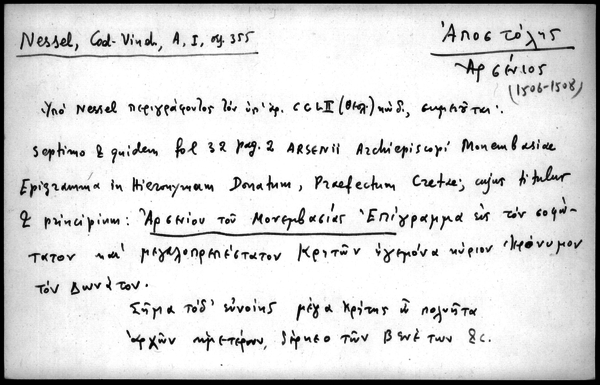 Nessel, Cod. Vind., A, I, σφ. 355
Ἀποστόλης
Ἀρσένιος
(1506-1508)
Ὑπὸ Nessel περιγράφοντος τὸν ὑπ' ἀρ. CCLII (θεολ) κώδι, σημειοῦται:
Septimo & quidem fol 32 pag. 2 ARSENII Archiepiscopi Monembasiae
Epigramma in Hieronymum Donatum, Praefectum Cretae; cujus titulus
& principium: Ἀρσενίου τοῦ Μονεμβασίας Ἐπίγραμμα εἰς τὸν σοφώ-
τατον καὶ μεγαλοπρεπέστατον Κρητῶν ἡγεμόνα κύριον Ἱερόνυμον
τὸν Δωνᾶτον.
Σῆμα τόδ' εὐνοίης μέγα Κρήτης ὦ πολιῆτα
ἀρχῶν ἡμετέρων, τῶν Βενέτων &c.